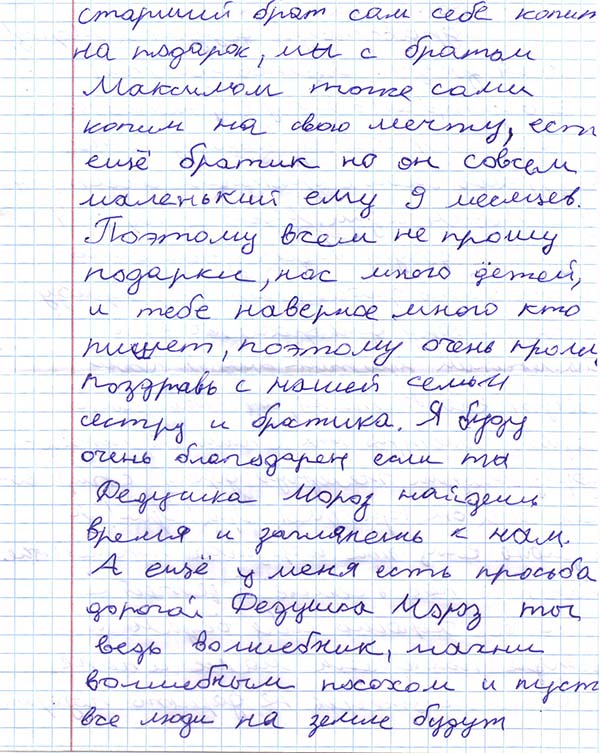 старший брат сам себе копит
на подарок, мы с братом
Максимом тоже сами
копим на свою мечту, есть
ещё братик но он совсем
маленький ему 9 месяцев.
Поэтому всем не прошу
подарки, нас много детей,
и тебе наверное много кто
пишет, поэтому очень прошу,
поздравь с нашей семьи
сестру и братика. Я буду
очень благодарен если ты
Дедушка Мороз найдешь
время и заглянешь к нам.
А ещё у меня есть просьба
дорогой Дедушка Мороз ты
ведь волшебник, махни
волшебным посохом и пусть
все люди на земле будут